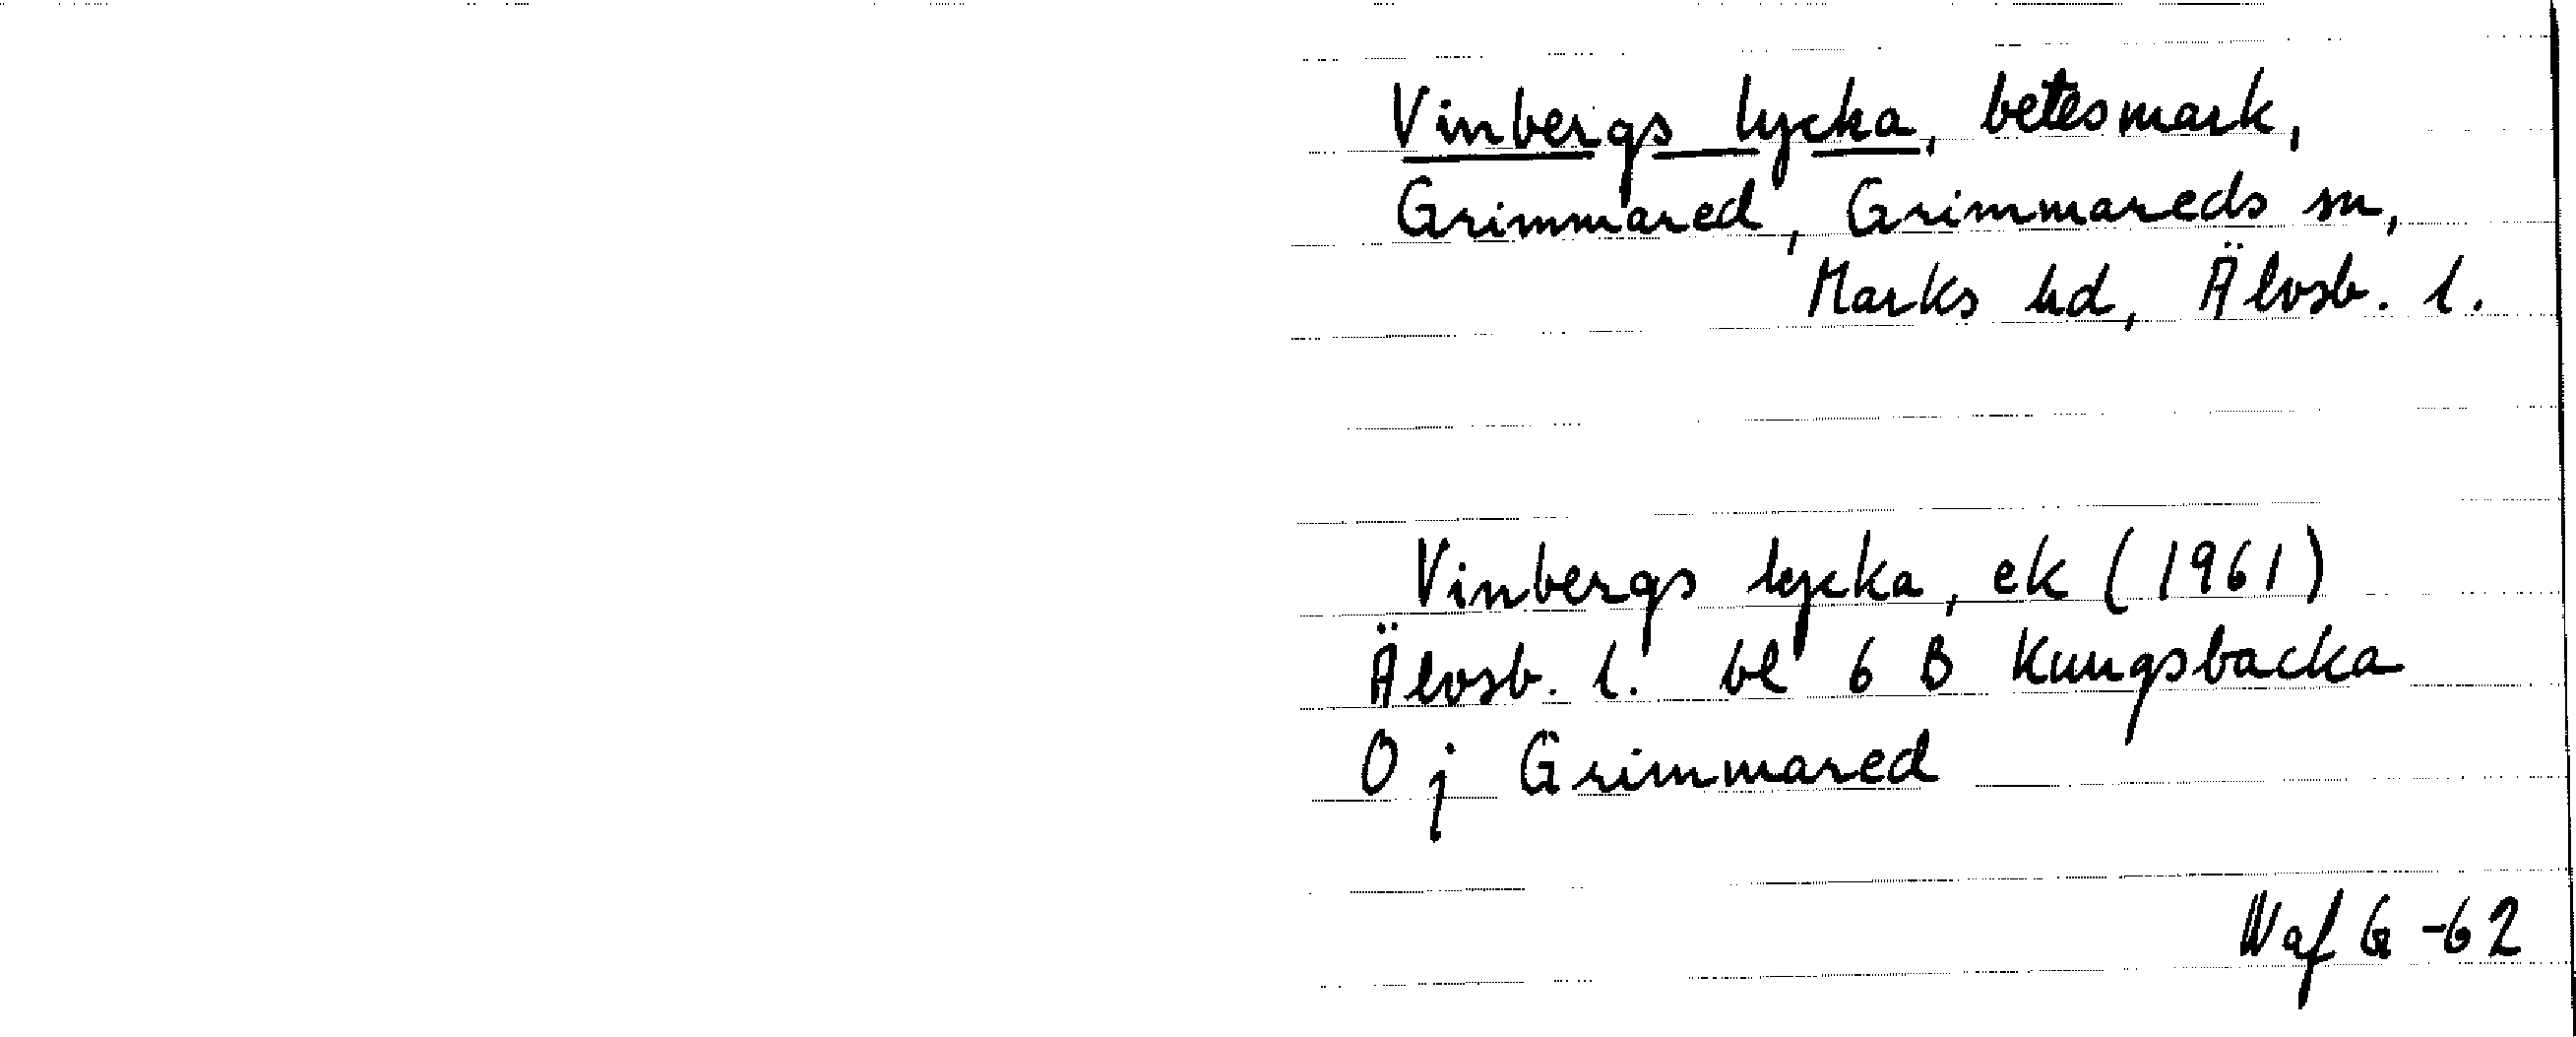 Vinbergs lycka, betesmark,
Grimmared, Grimmareds sn,
Marks hd, Älvsb. l.
Vinbergs lycka, ek (1961)
Älvsb. l. bl 6 B Kungsbacka
O j Grimmared
W af G -62